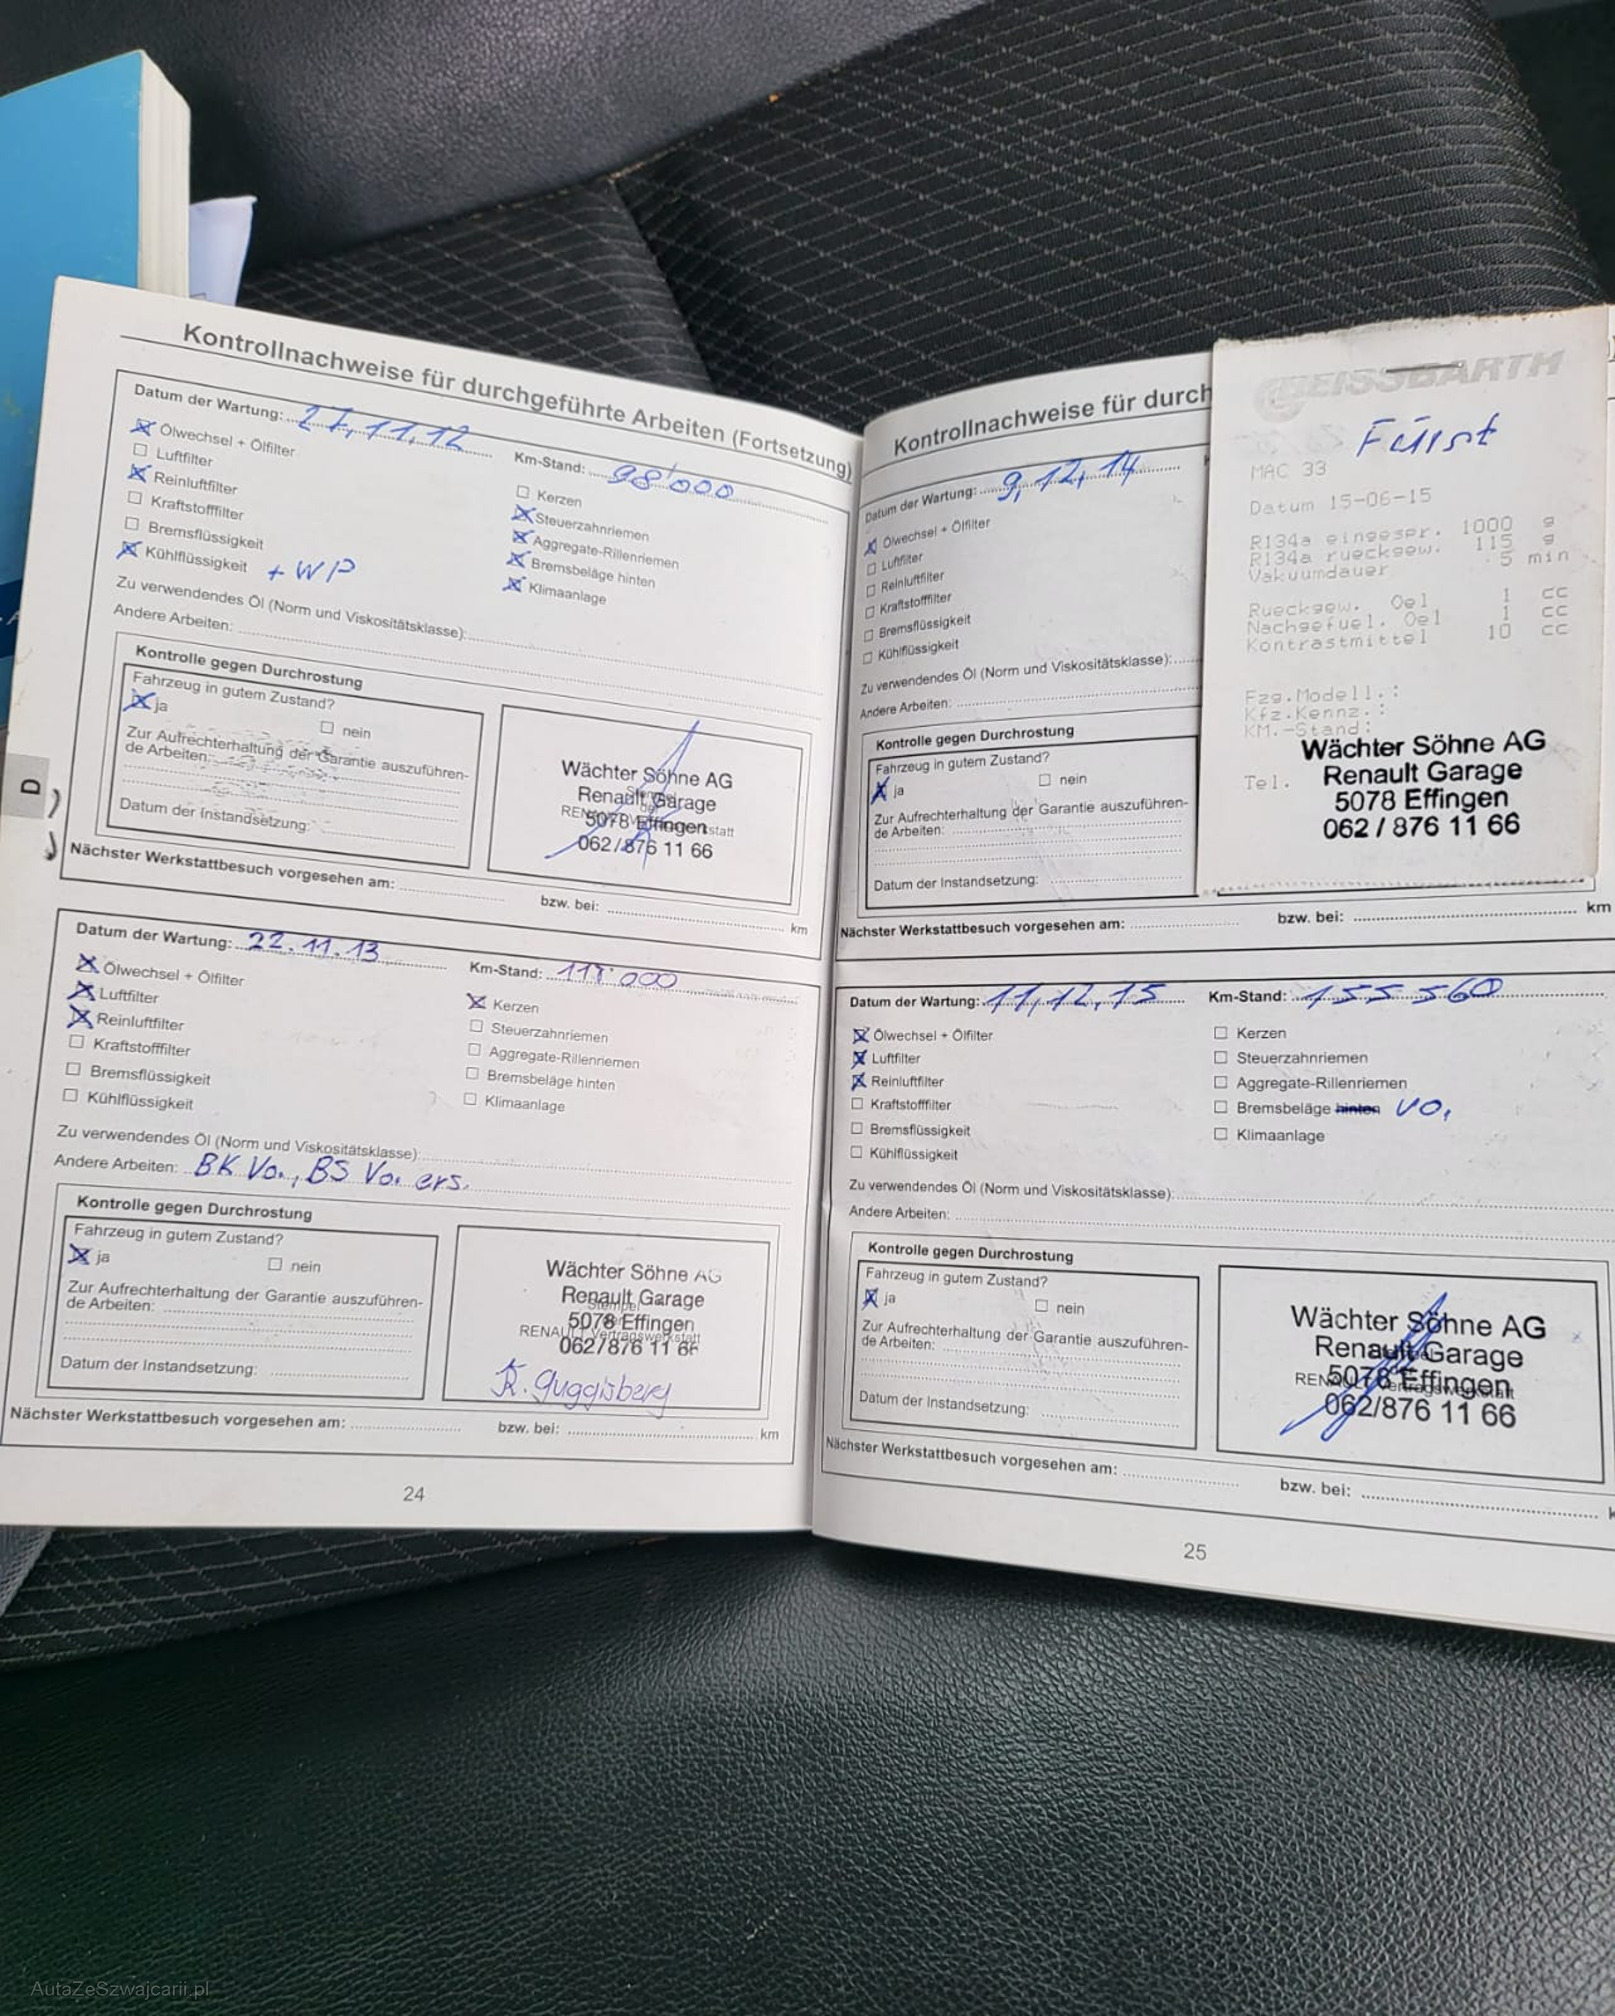 Kontrollnachweise für durchgeführte Arbeiten (Fortsetzung)
Datum der Wartung: 27,11,12
Km-Stand: 98'000
Ölwechsel + Ölfilter
Luftfilter
Reinluftfilter
Kraftstofffilter
Bremsflüssigkeit
Kühlflüssigkeit + WP
Kerzen
Steuerzahnriemen
Aggregate-Rillenriemen
Bremsbeläge hinten
Klimaanlage
Zu verwendendes Öl (Norm und Viskositätsklasse):
Andere Arbeiten:
Kontrolle gegen Durchrostung
Fahrzeug in gutem Zustand?
ja
nein
Zur Aufrechterhaltung der Garantie auszuführen-
de Arbeiten:
Datum der Instandsetzung:
Wächter Söhne AG
Renault Garage
5078 Effingen
062/876 11 66
Nächster Werkstattbesuch vorgesehen am:
bzw. bei: km
D
Datum der Wartung: 22.11.13
Km-Stand: 000
Ölwechsel + Ölfilter
Luftfilter
Reinluftfilter
Kraftstofffilter
Bremsflüssigkeit
Kühlflüssigkeit
Kerzen
Steuerzahnriemen
Aggregate-Rillenriemen
Bremsbeläge hinten
Klimaanlage
Zu verwendendes Öl (Norm und Viskositätsklasse):
Andere Arbeiten: BK Vo., BS Vo. ers.
Kontrolle gegen Durchrostung
Fahrzeug in gutem Zustand?
ja
nein
Zur Aufrechterhaltung der Garantie auszuführen-
de Arbeiten:
Datum der Instandsetzung:
Wächter Söhne AG
Renault Garage
Stempel
5078 Effingen
RENAULT Vertragswerkstatt
062/876 11 66
R. Guggisberg
Nächster Werkstattbesuch vorgesehen am:
bzw. bei: km
24
Kontrollnachweise für durch
Datum der Wartung: 9,12,14
Ölwechsel + Ölfilter
Luftfilter
Reinluftfilter
Kraftstofffilter
Bremsflüssigkeit
Kühlflüssigkeit
Zu verwendendes Öl (Norm und Viskositätsklasse):
Andere Arbeiten:
Kontrolle gegen Durchrostung
Fahrzeug in gutem Zustand?
ja
nein
Zur Aufrechterhaltung der Garantie auszuführen-
de Arbeiten:
Datum der Instandsetzung:
Nächster Werkstattbesuch vorgesehen am:
bzw. bei: km
BEISSBARTH
Fürst
MAC 33
Datum 15-06-15
R134a eingespr. 1000 g
R134a rueckgew. 115 g
Vakuumdauer 5 min
Rueckgew. Oel 1 cc
Nachgefuel. Oel 1 cc
Kontrastmittel 10 cc
Fzg.Modell.:
Kfz.Kennz.:
KM.-Stand:
Tel.
Wächter Söhne AG
Renault Garage
5078 Effingen
062 / 876 11 66
Datum der Wartung: 11,12,15
Km-Stand: 155 560
Ölwechsel + Ölfilter
Luftfilter
Reinluftfilter
Kraftstofffilter
Bremsflüssigkeit
Kühlflüssigkeit
Kerzen
Steuerzahnriemen
Aggregate-Rillenriemen
Bremsbeläge hinten VO,
Klimaanlage
Zu verwendendes Öl (Norm und Viskositätsklasse):
Andere Arbeiten:
Kontrolle gegen Durchrostung
Fahrzeug in gutem Zustand?
ja
nein
Zur Aufrechterhaltung der Garantie auszuführen-
de Arbeiten:
Datum der Instandsetzung:
Wächter Söhne AG
Renault Garage
5078 Effingen
062/876 11 66
Nächster Werkstattbesuch vorgesehen am:
bzw. bei:
25
AutaZeSzwajcarii.pl